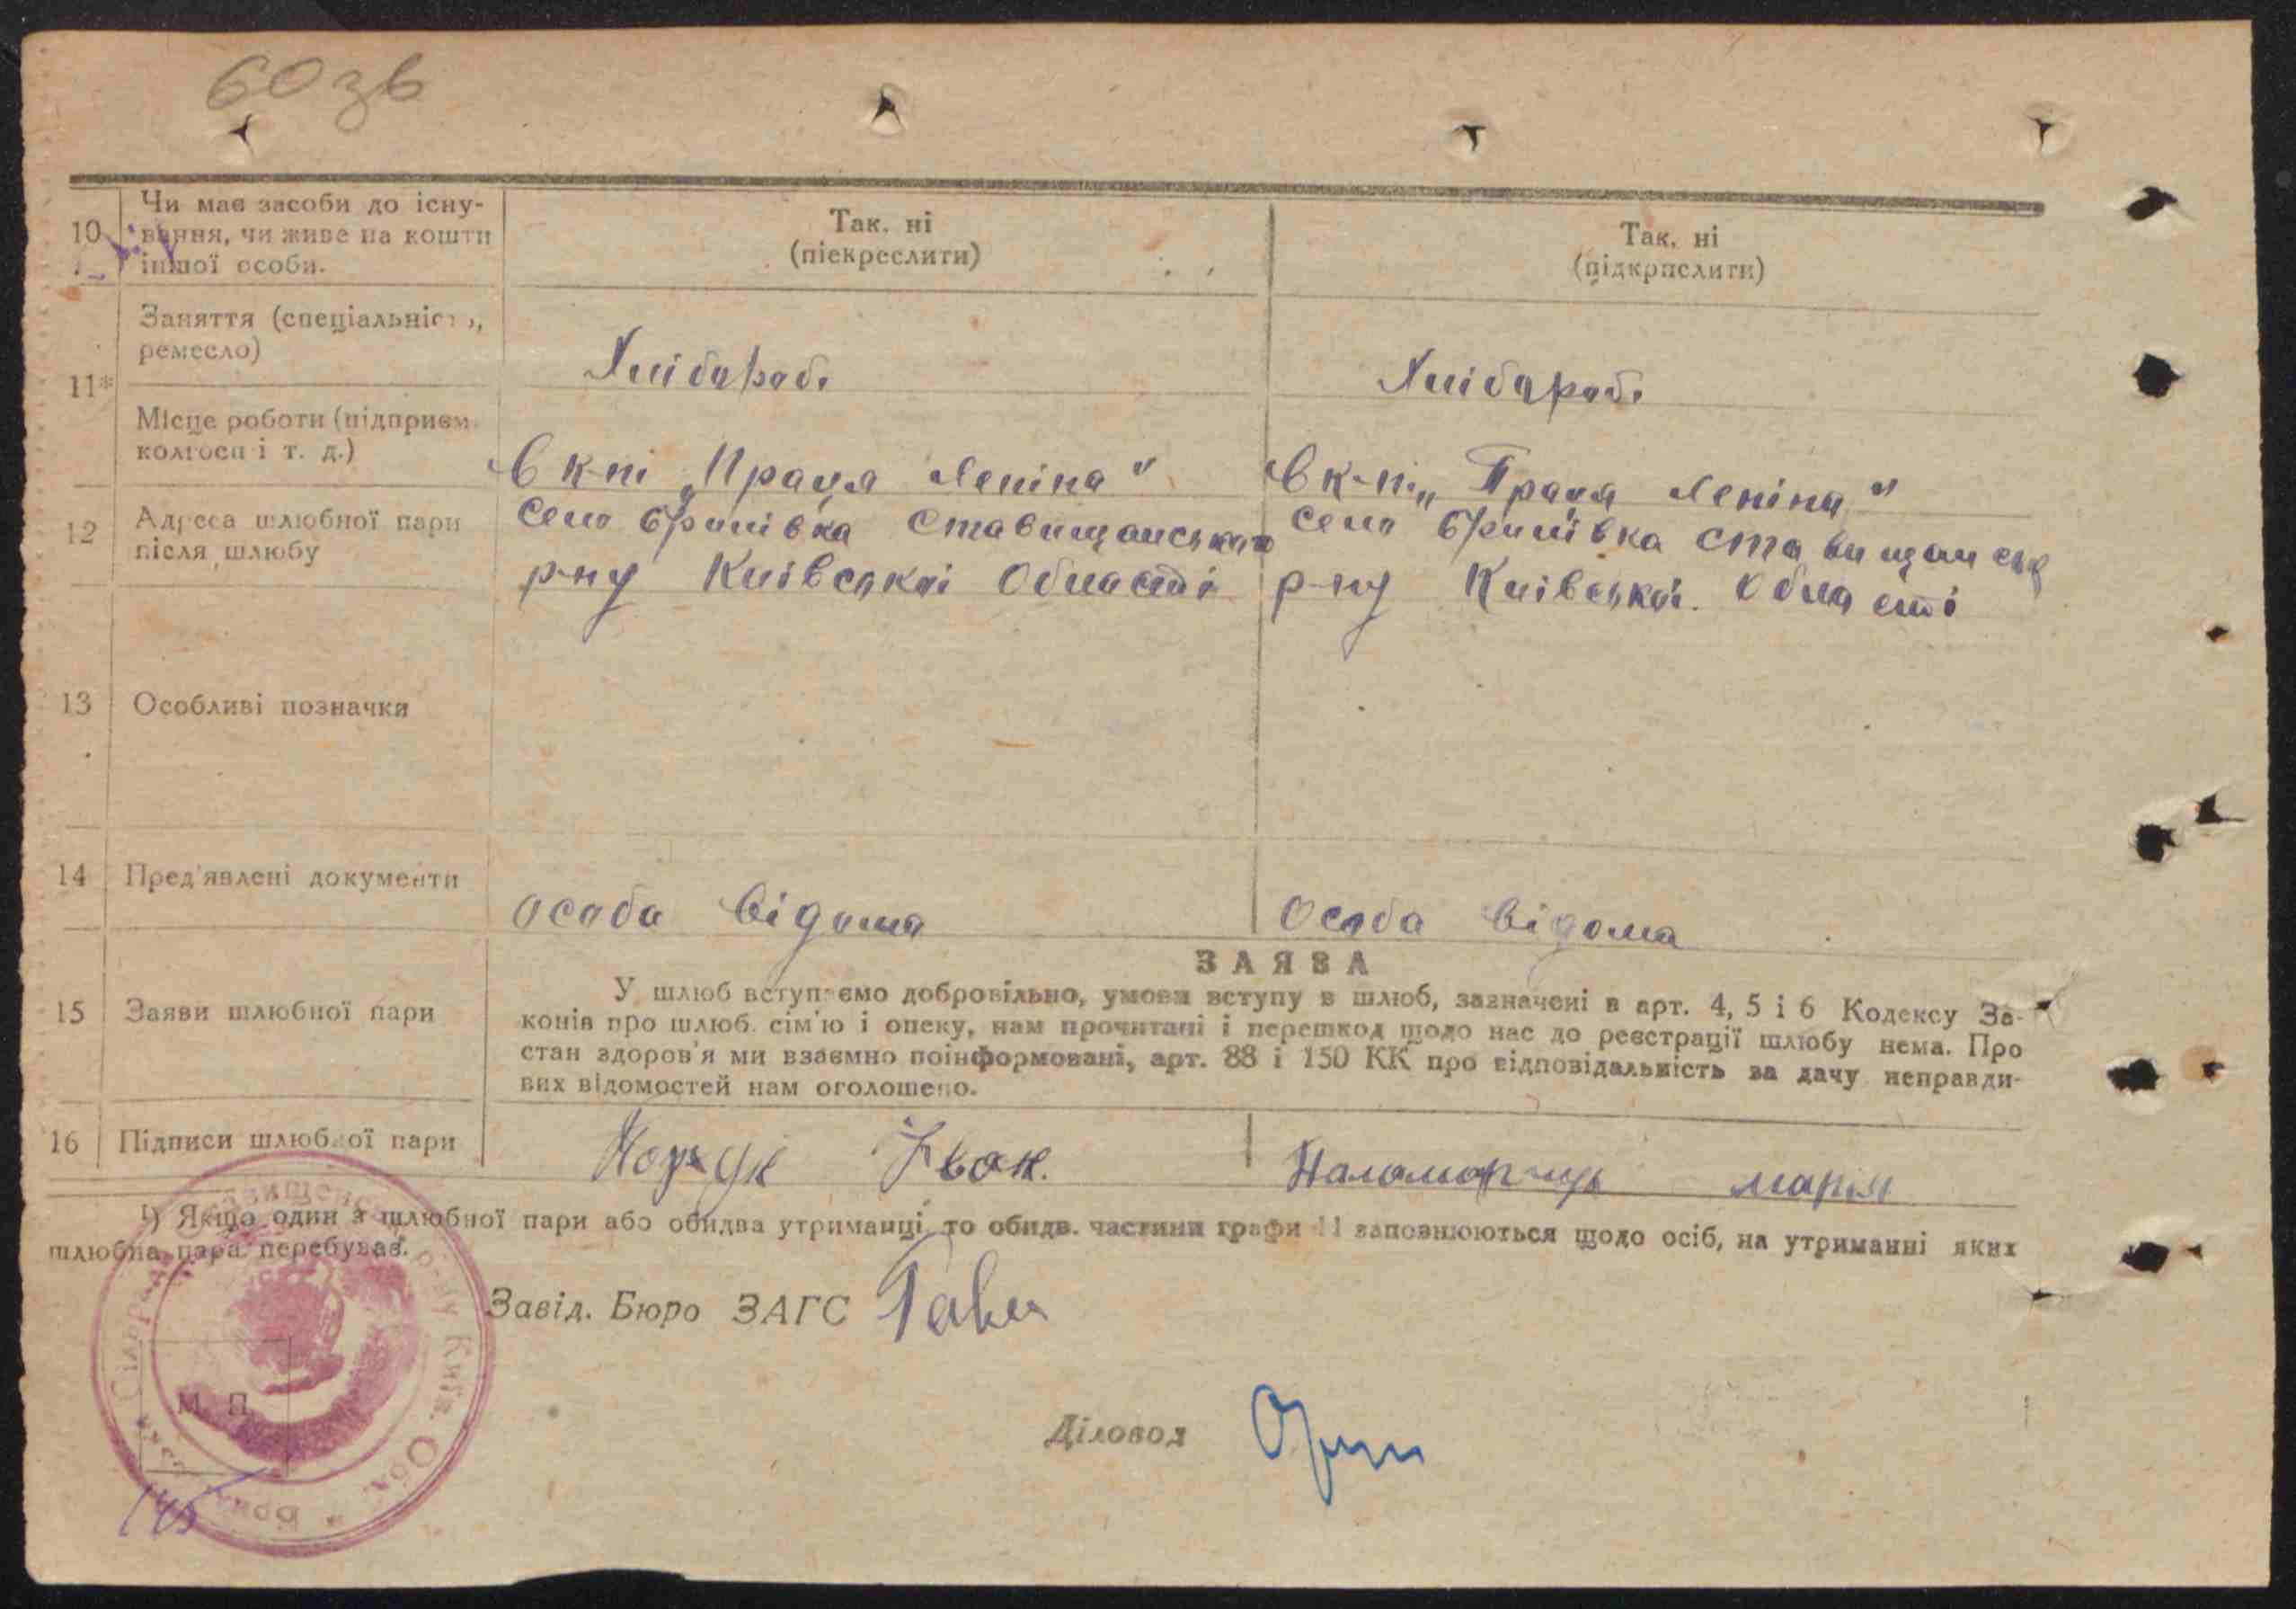 60зв
10 Чи має засоби до існу-
вання, чи живе на кошти
іншої особи.
Так, ні
(піекреслити)
Так, ні
(підкрпслити)
11*
Заняття (спеціальність,
ремесло)
Хлібороб.
Хлібороб.
Місце роботи (підприєм.
колгосп і т. д.)
В к-пі „Праця Леніна"
В к-пі „Праця Леніна"
12 Адреса шлюбної пари
після шлюбу
село Брилівка Ставищанського
р-ну Київської Області
село Брилівка Ставищансь
р-ну Київської Області
13 Особливі позначки
14 Пред'явлені документи
особа відома
Особа відома
15 Заяви шлюбної пари
ЗАЯВА
У шлюб вступаємо добровільно, умови вступу в шлюб, зазначені в арт. 4, 5 і 6 Кодексу За-
конів про шлюб. сім'ю і опеку, нам прочитані і перешкод щодо нас до реєстрації шлюбу нема. Про
стан здоров'я ми взаємно поінформовані, арт. 88 і 150 КК про відповідальність за дачу неправди-
вих відомостей нам оголошено.
16 Підписи шлюбної пари
Іван.
Паламарчук марія
¹) Якщо один з шлюбної пари або обидва утриманці, то обидв. частини графи 11 заповнюються щодо осіб, на утриманні яких
шлюбна пара перебуває.
Завід. Бюро ЗАГС
Діловод
М. П.
р-ну Київ. Обл.
145